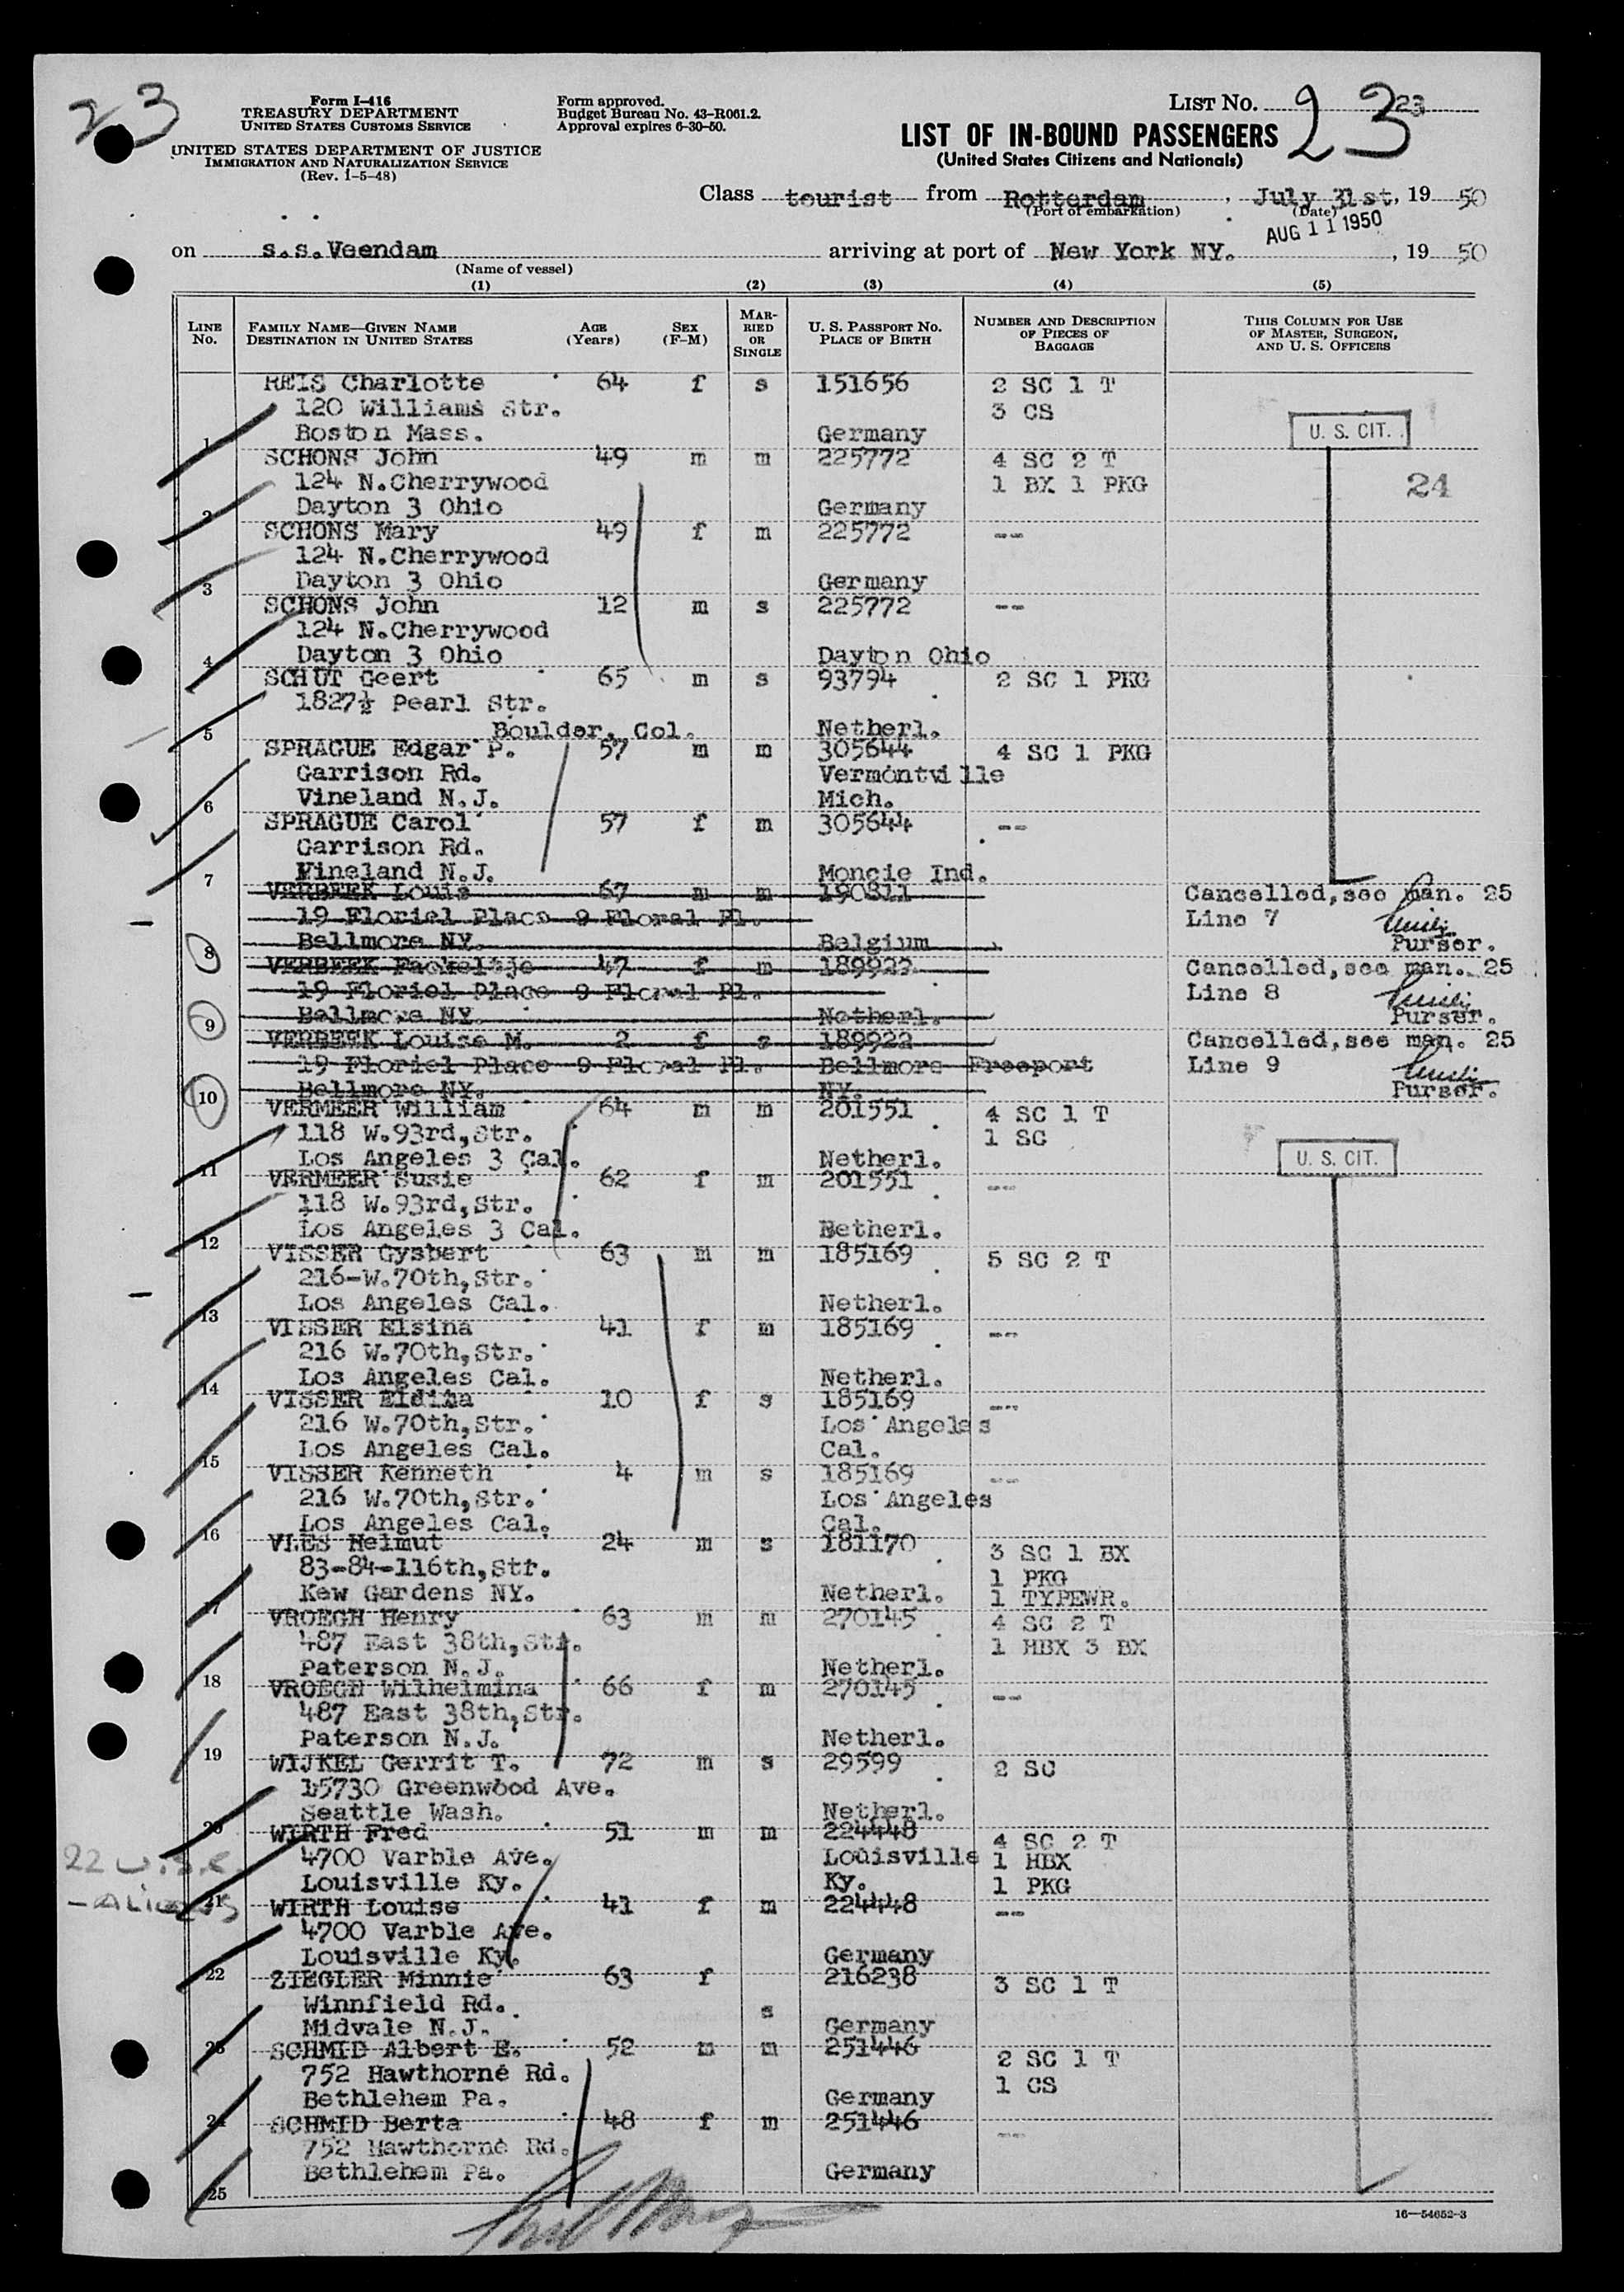 23
Form I-416
TREASURY DEPARTMENT
UNITED STATES CUSTOMS SERVICE
UNITED STATES DEPARTMENT OF JUSTICE
IMMIGRATION AND NATURALIZATION SERVICE
(Rev. 1-5-48)
Form approved.
Budget Bureau No. 43-R061.2.
Approval expires 6-30-50.
LIST NO. 23 23
LIST OF IN-BOUND PASSENGERS
(United States Citizens and Nationals)
Class tourist from Rotterdam, July 31st, 19 50
(Port of embarkation) (Date)
AUG 11 1950
on s.s.Veendam arriving at port of New York NY. , 19 50
(Name of vessel)
(1) (2) (3) (4) (5)
LINE No. FAMILY NAME—GIVEN NAME DESTINATION IN UNITED STATES AGE (Years) SEX (F-M) MARRIED OR SINGLE U. S. PASSPORT NO. PLACE OF BIRTH NUMBER AND DESCRIPTION OF PIECES OF BAGGAGE THIS COLUMN FOR USE OF MASTER, SURGEON, AND U. S. OFFICERS
REIS Charlotte 64 f s 151656 2 SC 1 T
120 Williams Str. 3 CS
1 Boston Mass. Germany U. S. CIT.
SCHONS John 49 m m 225772 4 SC 2 T
124 N.Cherrywood 1 BX 1 PKG 24
2 Dayton 3 Ohio Germany
SCHONS Mary 49 f m 225772 --
124 N.Cherrywood
3 Dayton 3 Ohio Germany
SCHONS John 12 m s 225772 --
124 N.Cherrywood
4 Dayton 3 Ohio Dayton Ohio
SCHUT Geert 65 m s 93794 2 SC 1 PKG
1827½ Pearl Str.
5 Boulder, Col. Netherl.
SPRAGUE Edgar P. 57 m m 305644 4 SC 1 PKG
Garrison Rd. Vermontville
6 Vineland N.J. Mich.
SPRAGUE Carol 57 f m 305644 --
Garrison Rd.
7 Vineland N.J. Moncie Ind.
VERBEEK Louis 67 m m 190811 Cancelled,see man. 25
19 Floriel Place 9 Floral Pl. Line 7
8 Bellmore NY. Belgium Purser.
VERBEEK 47 f m 189922 Cancelled,see man. 25
19 Floriel Place 9 Floral Pl. Line 8
9 Bellmore NY. Netherl. Purser.
VERBEEK Louise M. 2 f s 189922 Cancelled,see man. 25
19 Floriel Place 9 Floral Pl. Bellmore Freeport Line 9
10 Bellmore NY. NY. Purser.
VERMEER William 64 m m 201551 4 SC 1 T
118 W.93rd,Str. 1 SC
11 Los Angeles 3 Cal. Netherl. U. S. CIT.
VERMEER Susie 62 f m 201551 --
118 W.93rd,Str.
12 Los Angeles 3 Cal. Netherl.
VISSER Gysbert 63 m m 185169 5 SC 2 T
216-W.70th,Str.
13 Los Angeles Cal. Netherl.
VISSER Elsina 41 f m 185169 --
216 W.70th,Str.
14 Los Angeles Cal. Netherl.
VISSER Eldina 10 f s 185169 --
216 W.70th,Str. Los Angeles
15 Los Angeles Cal. Cal.
VISSER Kenneth 4 m s 185169 --
216 W.70th,Str. Los Angeles
16 Los Angeles Cal. Cal.
VLES Helmut 24 m s 181170 3 SC 1 BX
83-84-116th,Str. 1 PKG
17 Kew Gardens NY. Netherl. 1 TYPEWR.
VROEGH Henry 63 m m 270145 4 SC 2 T
487 East 38th,Str. 1 HBX 3 BX
18 Paterson N.J. Netherl.
VROEGH Wilhelmina 66 f m 270145 --
487 East 38th,Str.
19 Paterson N.J. Netherl.
WIJKEL Gerrit T. 72 m s 29599 2 SC
15730 Greenwood Ave.
20 Seattle Wash. Netherl.
WIRTH Fred 51 m m 224448 4 SC 2 T
22 U.S.C. 4700 Varble Ave. Louisville 1 HBX
21 Louisville Ky. Ky. 1 PKG
- ALIENS WIRTH Louise 41 f m 224448 --
4700 Varble Ave.
22 Louisville Ky. Germany
ZIEGLER Minnie 63 f 216238 3 SC 1 T
Winnfield Rd. s
23 Midvale N.J. Germany
SCHMID Albert E. 52 m m 251446 2 SC 1 T
752 Hawthorne Rd. 1 CS
24 Bethlehem Pa. Germany
SCHMID Berta 48 f m 251446 --
752 Hawthorne Rd.
25 Bethlehem Pa. Germany
16—54652-3